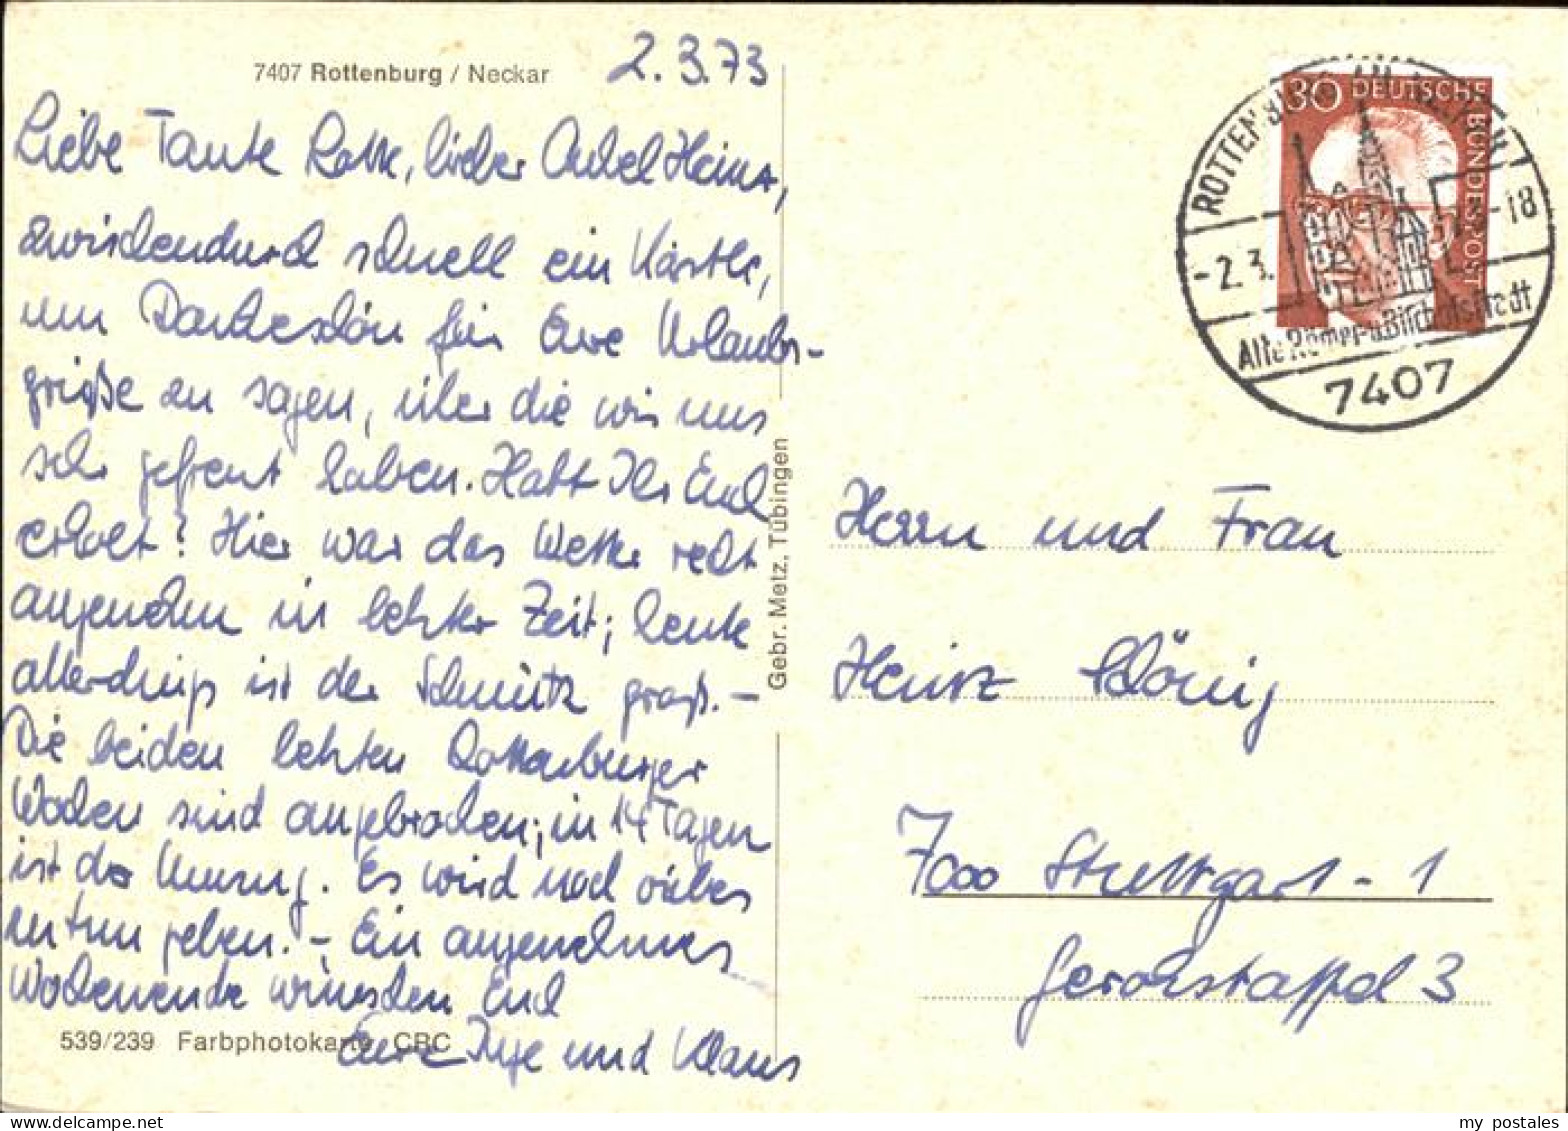 7407 Rottenburg / Neckar
2.3.73
Liebe Tante Lotte, lieber Onkel Heinz,
zwischendurch schnell ein Kärtle,
um Dankeschön für Eure Urlaubs-
grüße zu sagen, über die wir uns
sehr gefreut haben. Habt Ihr Euch
erholt? Hier war das Wetter recht
angenehm in letzter Zeit; heute
allerdings ist der Schmutz groß. –
Die beiden letzten Rottenburger
Wochen sind angebrochen; in 14 Tagen
ist der Umzug. Es wird noch vieles
zu tun geben. – Ein angenehmes
Wochenende wünschen Euch
Eure Inge und Klaus
539/239 Farbphotokarte CRC
Gebr. Metz, Tübingen
30 DEUTSCHE
BUNDESPOST
ROTTENBURG AM NECKAR 1
-2.3. -18
Alte Römer-u.Bischofsstadt
7407
Herrn und Frau
Heinz König
7000 Stuttgart-1
Gerokstaffel 3
my postales